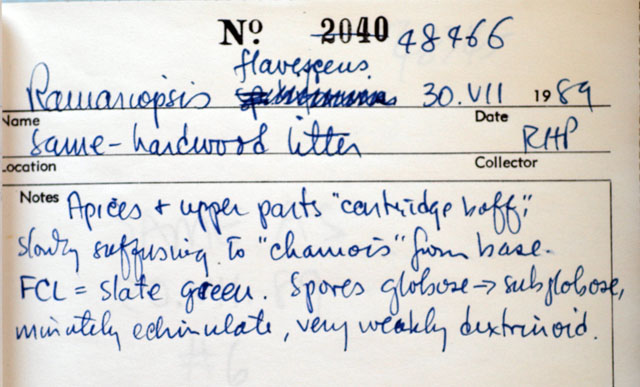 Nº 2040 48466
flavescens.
Ramariopsis 30.VII 1989
Name Date
same - hardwood litter RHP
Location Collector
Notes Apices + upper parts "cartridge buff;"
slowly suffusing to "chamois" from base.
FCL = slate green. Spores globose → subglobose,
minutely echinulate, very weakly dextrinoid.